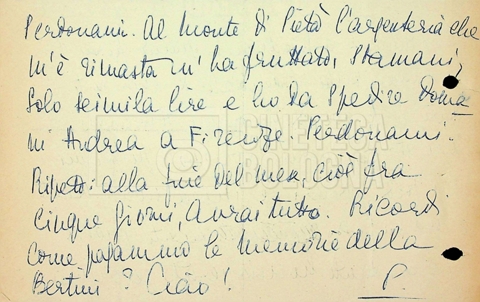 Perdonami. Al Monte di Pietà l'argenteria che
m'è rimasta m'ha fruttato, stamani,
solo seimila lire e ho da spedire doma
ni Andrea a Firenze. Perdonami.
Ripeto: alla fine del mese, cioè fra
cinque giorni, avrai tutto. Ricordi
come pagammo le memorie della
Bertini? Ciao!
P.
CINETECA
BOLOGNA